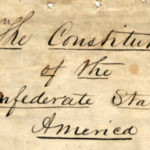 The Constitu
of the
nfederate Sta
America